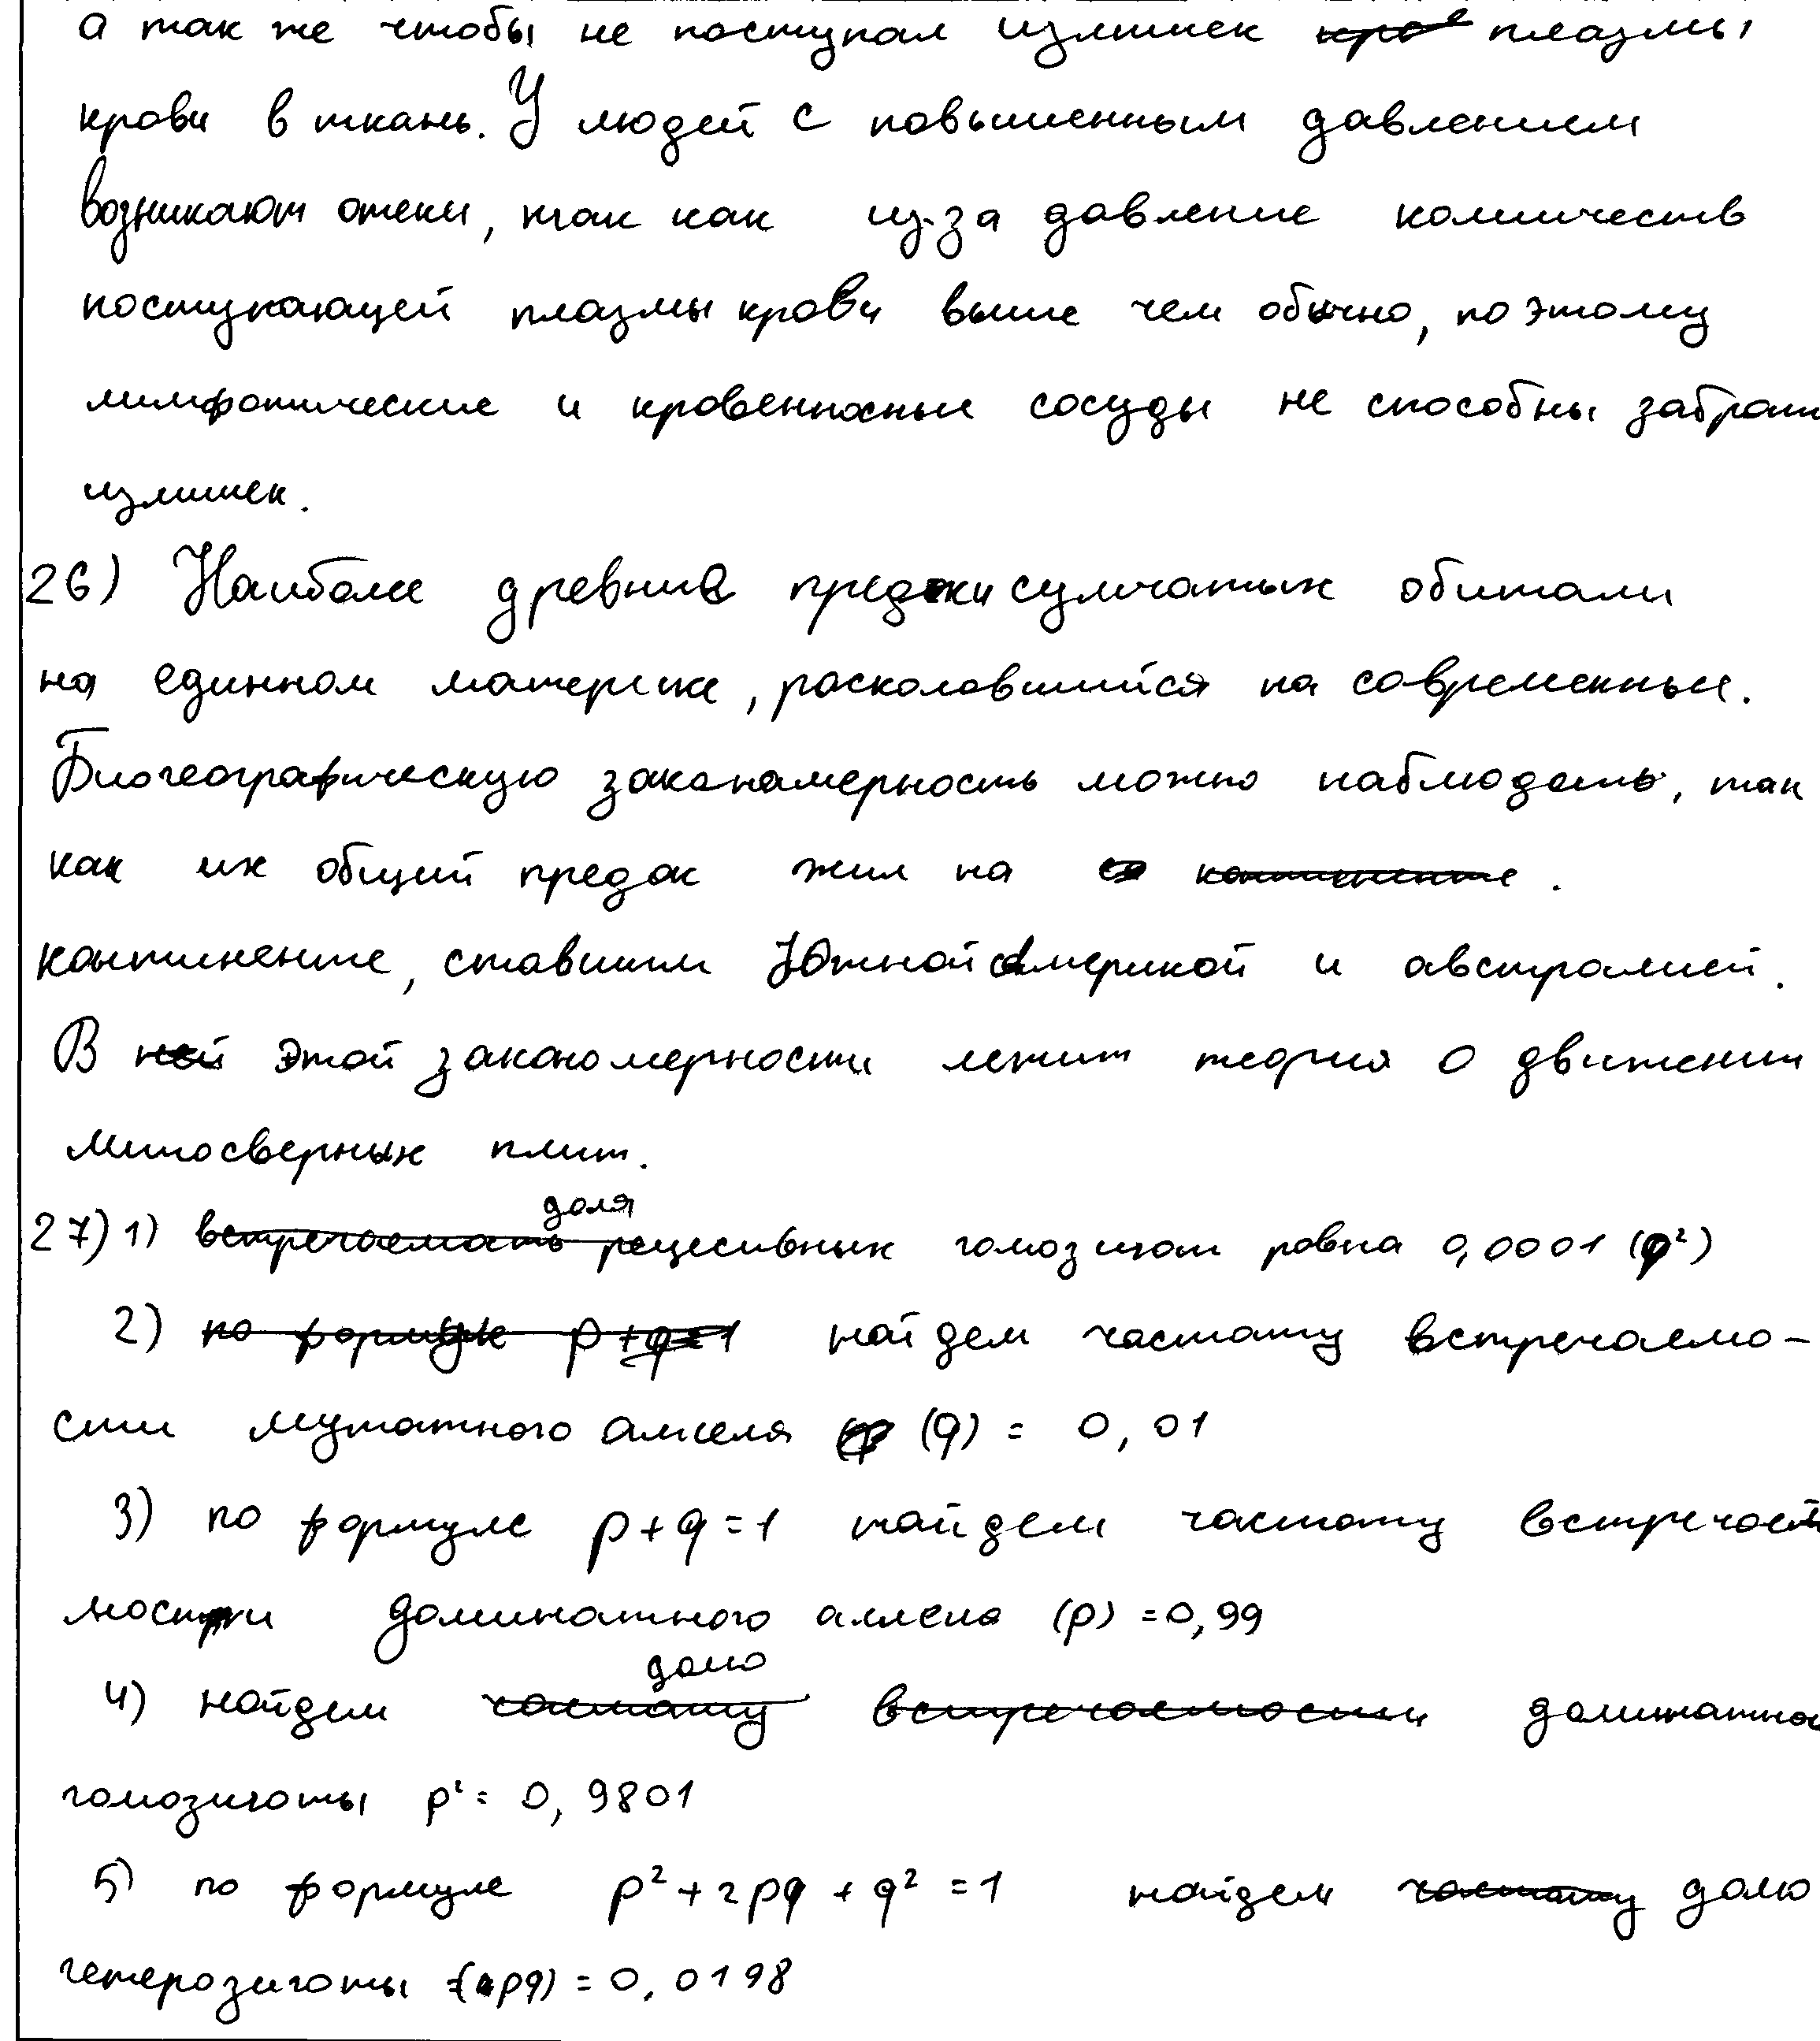 а так же чтобы не поступал излишек плазмы
крови в ткань. У людей с повышенным давлением
возникают отеки, так как из-за давление количеств
поступающей плазмы крови выше чем обычно, поэтому
лимфотические и кровенносные сосуды не способны забрать
излишек.
26) Наиболее древние предки сумчатых обитали
на единном материке, расколовшийся на современные.
Биогеографическую закономерность можно наблюдать, так
как их общий предок жил на
континенте, ставшим Южной Америкой и австралией.
В этой закономерности лежит теория о движении
литосверных плит.
27) 1) доля рецесивных гомозигот равна 0,0001 (q²)
2) найдем частоту встречаемо-
сти мутатного аллеля (q) = 0,01
3) по формуле p+q=1 найдем частоту встречае
мости доминатного аллеля (p) =0,99
4) найдем долю доминатной
гомозиготы p²= 0,9801
5) по формуле p²+2pq+q²=1 найдем долю
гетерозиготы (2pq) = 0,0198